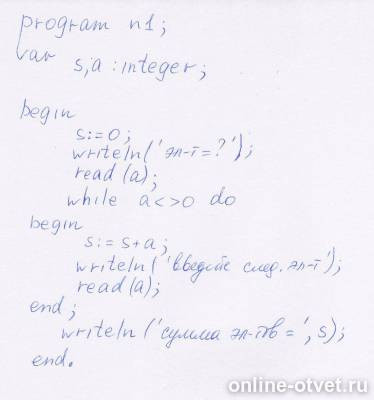 program n1;
var s,a : integer;
begin
s:=0;
writeln('эл-т=?');
read(a);
while a<>0 do
begin
s:= s+a;
writeln('введите след. эл-т');
read(a);
end;
writeln('сумма эл-тов =', s);
end.
online-otvet.ru